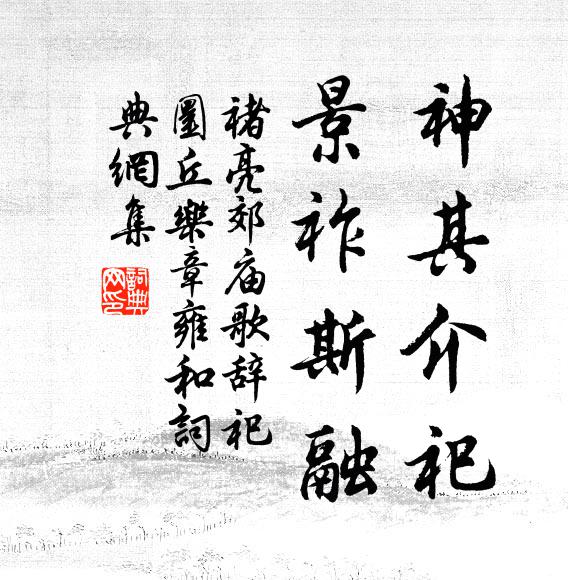 神其介祀
景祚斯融
褚亮郊庙歌辞祀
圜丘樂章雍和詞
典網集
詞典網印